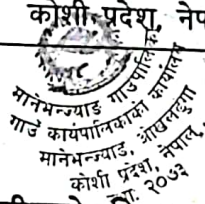 कोशी प्रदेश, नेप
मानेभन्ज्याङ गाउँपालिका
गाउँ कार्यपालिकाको कार्यालय
मानेभन्ज्याङ, ओखलढुंगा
कोशी प्रदेश, नेपाल
२०७३